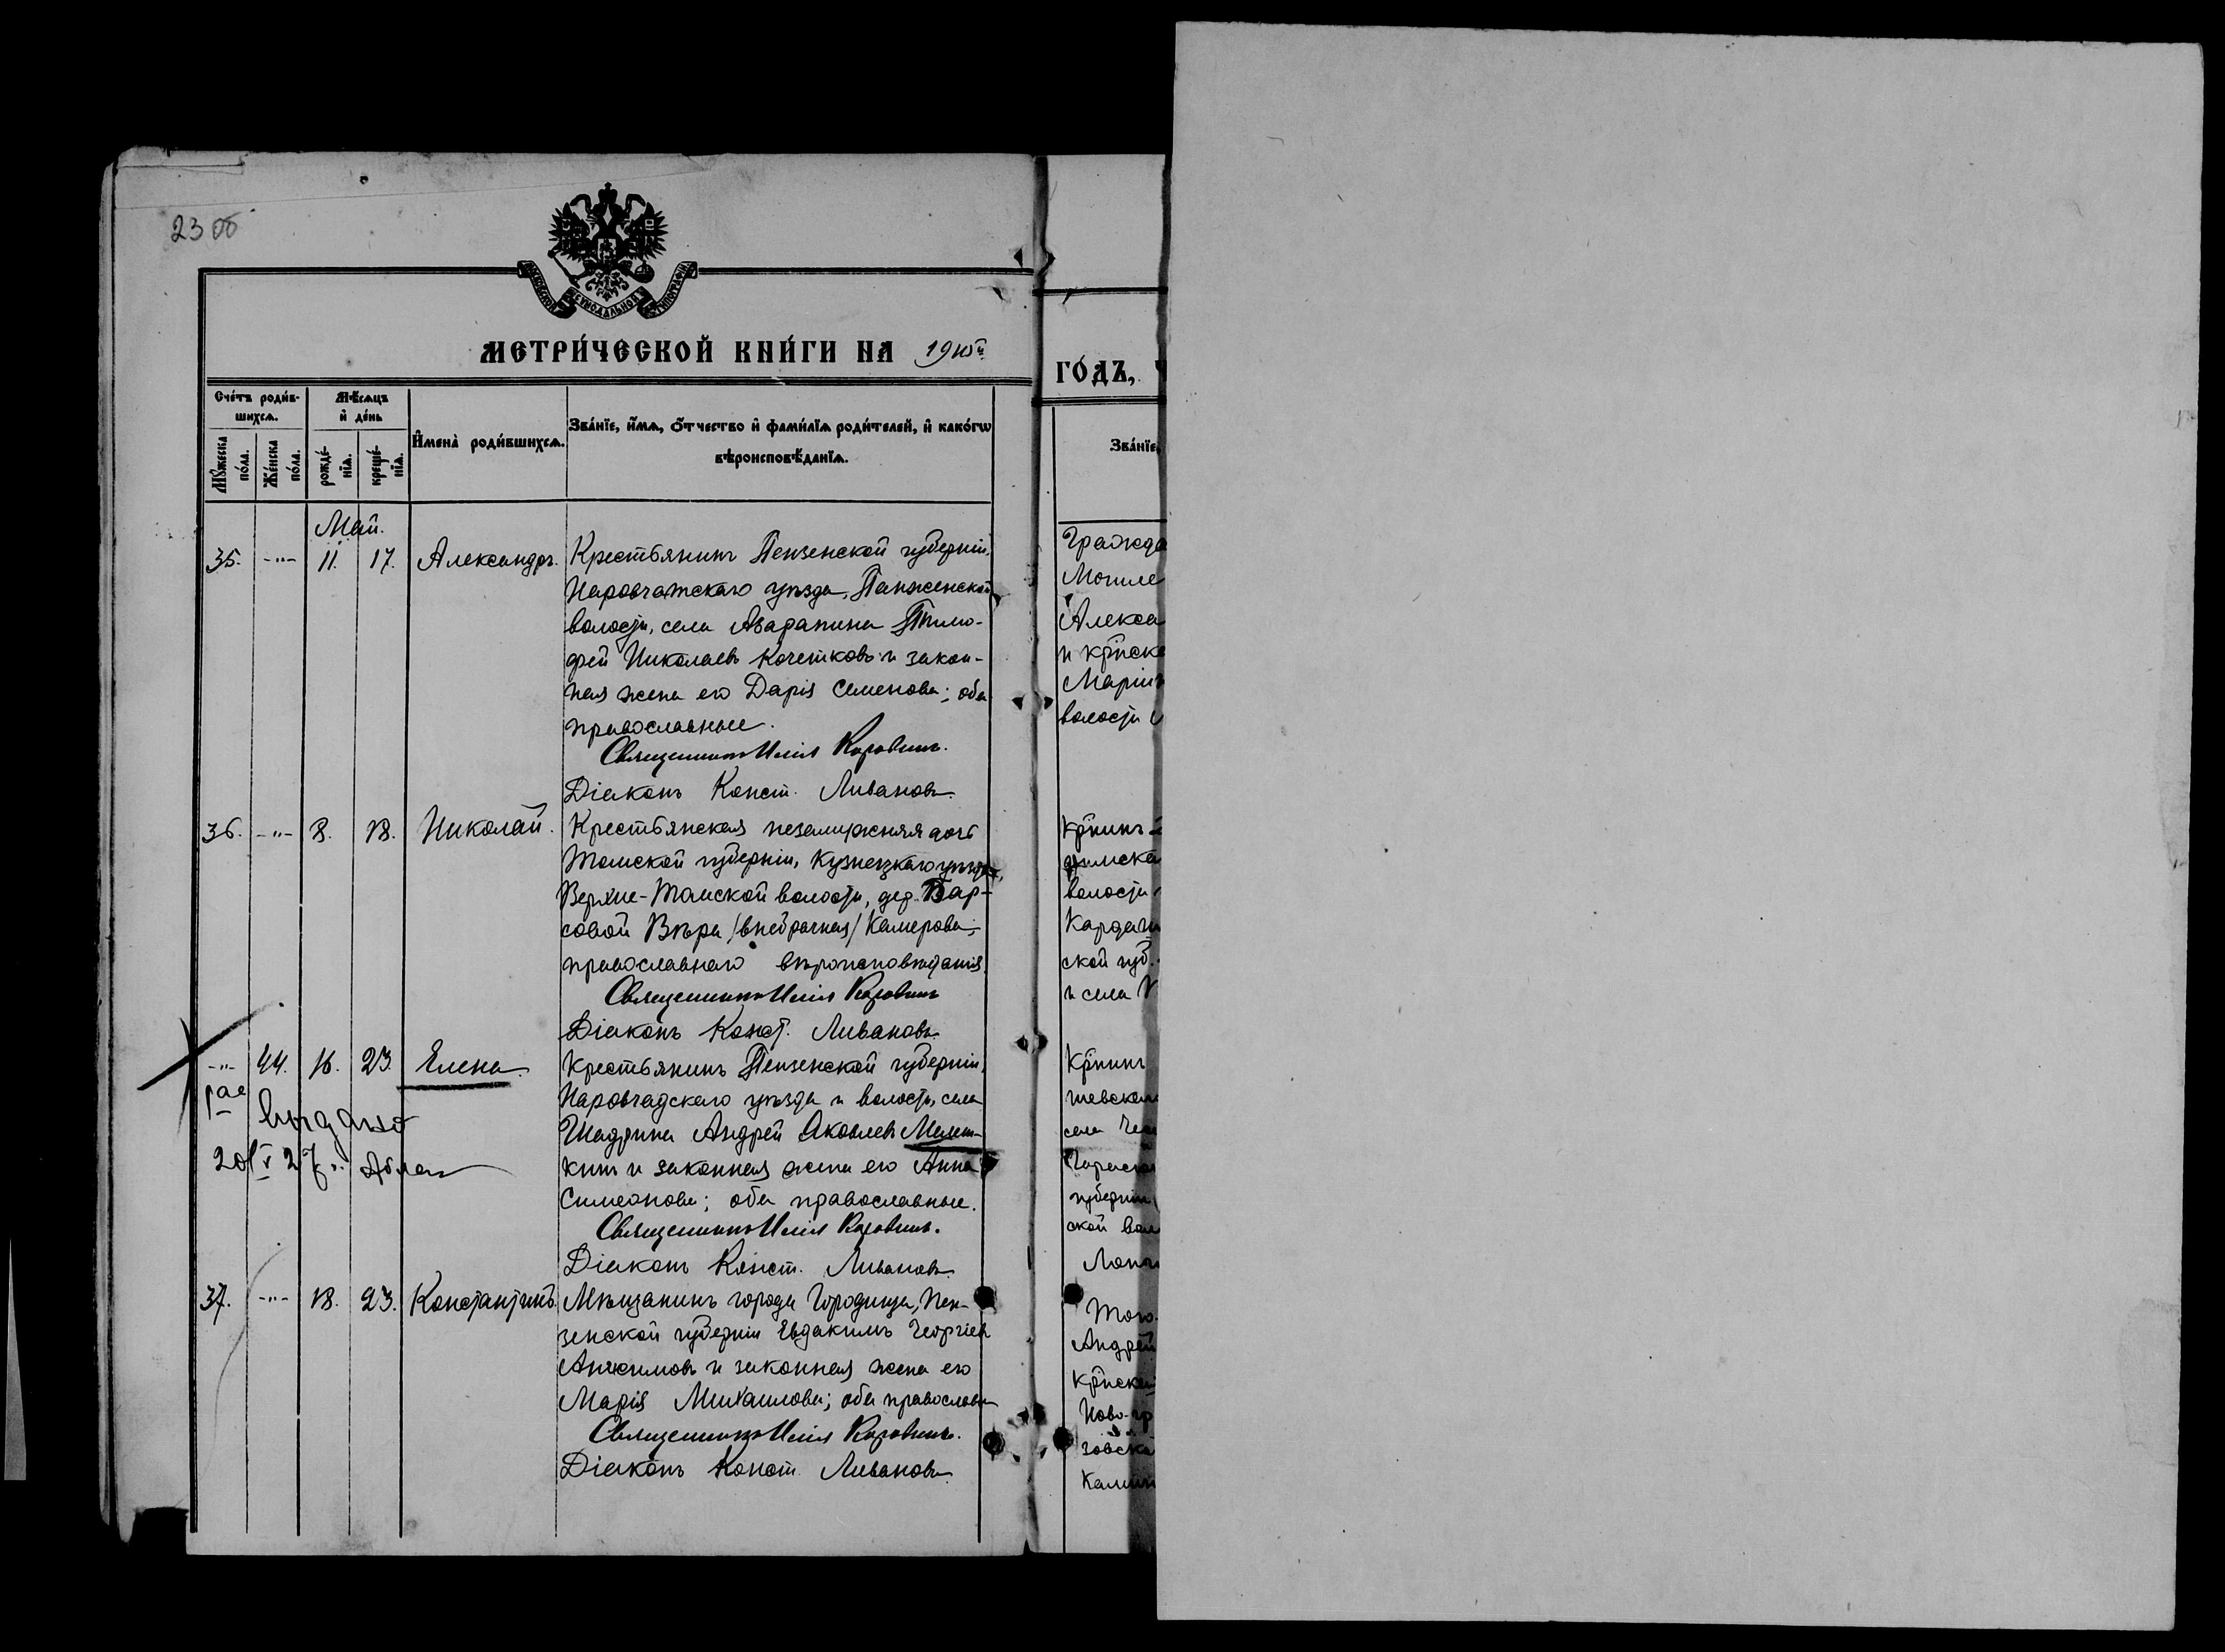 23 об
МОСКОВСКОЙ СѴНОДАЛЬНОЙ ТИПОГРАФІИ
МЕТРИ́ЧЕСКОЙ КНИ́ГИ НА 1910й
ГО́ДЪ,
Сче́тъ роди́в-
шихсѧ.
Мѣ́сѧцъ
и҆ де́нь
Мꙋ́жеска по́ла.
Же́нска по́ла.
рожде́-
нїѧ.
креще́-
нїѧ.
И҆мена̀ роди́вшихсѧ.
Зва́нїе, и҆́мѧ, ѻ҆́тчество и҆ фами́лїѧ роди́телей, и҆ како́гѡ
вѣроисповѣ́данїѧ.
Зва́нїе,
Май.
35. -"- 11. 17. Александръ. Крестьянинъ Пензенской губерніи,
Наровчатскаго уѣзда, Панженской
волости, села Азарапина Тимо-
фей Николаевъ Кочетковъ и закон-
ная жена его Дарія Семенова; оба
православные.
Священникъ Илія Коровинъ.
Діаконъ Конст. Ливановъ.
36. -"- 8. 18. Николай. Крестьянская незамужняя дочь
Томской губерніи, Кузнецкаго уѣзда,
Верхне-Томской волости, дер. Бар-
совой Вѣра /внебрачная/ Камерова;
православнаго вѣроисповѣданія.
Священникъ Илія Коровинъ
Діаконъ Конст. Ливановъ.
-"- 44. 16. 23. Елена. Крестьянинъ Пензенской губерніи,
Наровчадскаго уѣзда и волости, села
Шадрина Андрей Яковлевъ
кинъ и законная жена его Анна
Симеонова; оба православные.
Священникъ Илія Коровинъ.
Діаконъ Конст. Ливановъ.
выдано
37. -"- 18. 23. Константинъ. Мѣщанинъ города Городища, Пен-
зенской губерніи Евдакимъ Георгіев
Анисимовъ и законная жена его
Марія Михаилова; оба православн
Священникъ Илія Коровинъ.
Діаконъ Конст. Ливановъ.
Гражда
Могиле
Алекса
и крпнск
Марiин
волости
Крпинъ
волости
скои губ.
и села
Крпинъ
села
губерніи
ской вол
Того-
Андрей
Ново-